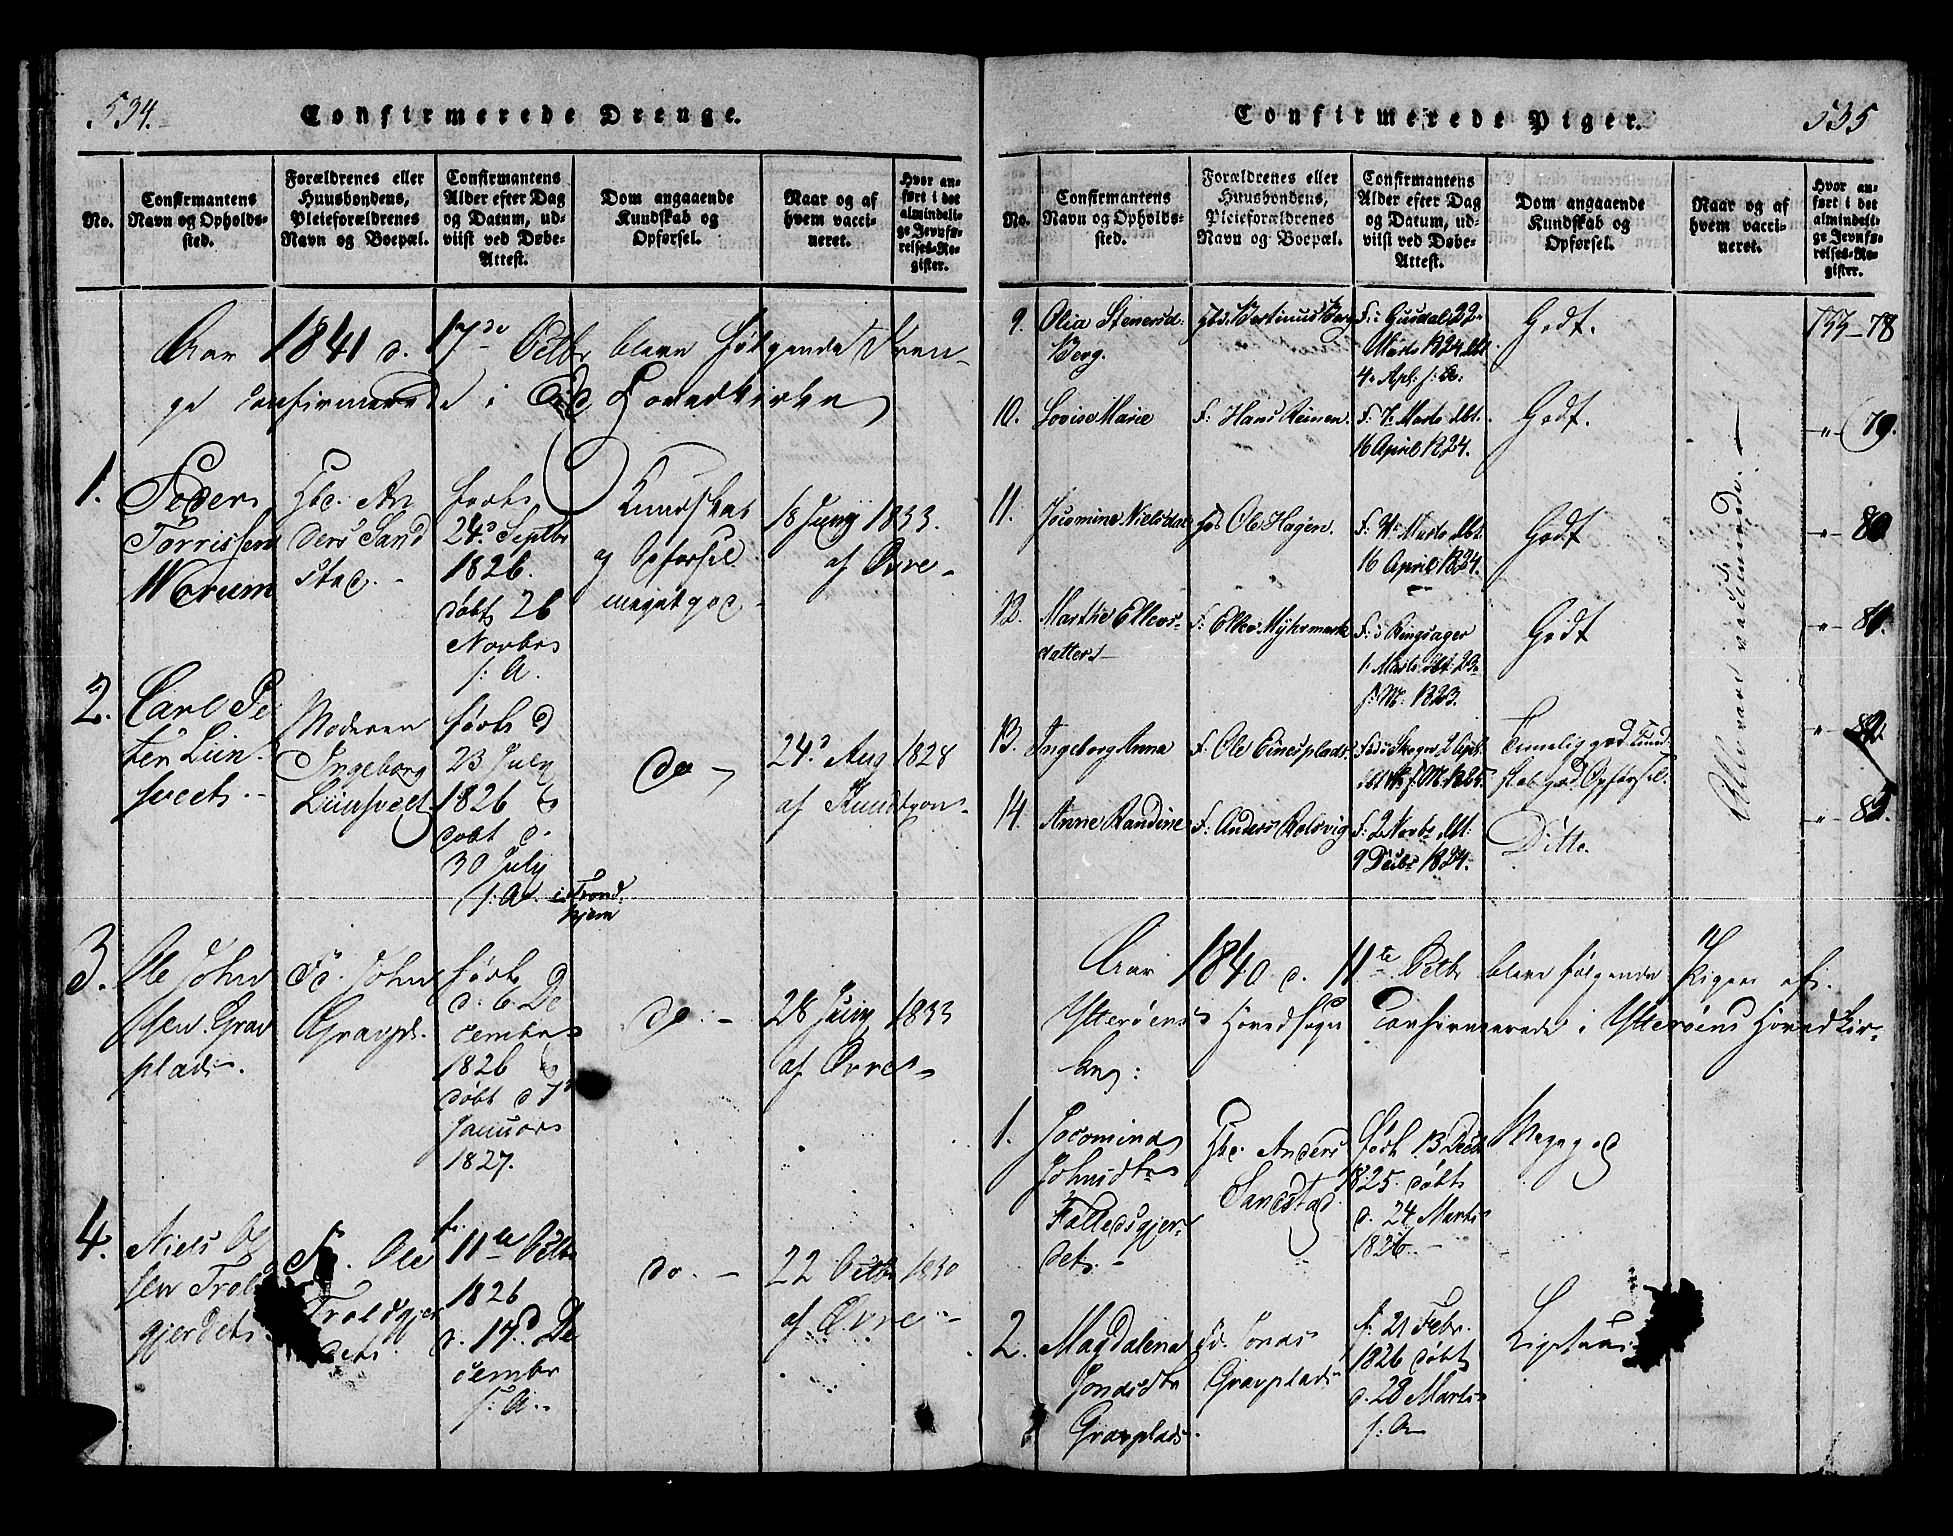 534.
Confirmerede Drenge.
No.
Confirmantens
Navn og Opholds-
sted.
Forældrenes eller
Huusbondens,
Pleieforældrenes
Navn og Boepæl.
Confirmantens
Alder efter Dag
og Datum, ud-
viist ved Døbe-
Attest.
Dom angaaende
Kundskab og
Opførsel.
Naar og af
hvem vacci-
neret.
Hvor an-
ført i det
almindeli-
ge Jevnfø-
relses-Re-
gister.
Aar 1841 d. 17de Octbr bleve følgende Dren-
ge confirmerede i Hovedkirken
1.
Peder
Torrissen
Worum
Hbd. An
ders Sand
stad. -
født
24d Septbr
1826.
døbt 26
Novbr
s: A.
Kundskab
og Opførsel
meget god
18 Juny 1833.
af Øvre -
2.
Carl Pe
ter Lün-
sveet. -
Moderen
Ingeborg
Lünsveet
født d
23 July
1826 &
døbt d.
30 July
s: A. i Trond-
hjem
do -
24d Aug 1828
af Knudtzon -
3.
Ole John
sen Grav
plads.
Fd. John
Gravpl.
født
d. 6 De
cember
1826 &
døbt d 1d
Januar
1827.
do. -
28 Juny 1833
af Øvre -
4.
Niels Ol
sen Trold
gjerdet.
F. Ole
Troldgjer
det.
f. 11te Octbr
1826
d. 17d De
cembr
s: A. -
do. -
22 Octbr 1830
af Øvre -
535
Confirmerede Piger.
No.
Confirmantens
Navn og Opholds-
sted.
Forældrenes eller
Huusbondens,
Pleieforældrenes
Navn og Boepæl.
Confirmantens
Alder efter Dag
og Datum, ud-
viist ved Døbe-
Attest.
Dom angaaende
Kundskab og
Opførsel.
Naar og af
hvem vacci-
neret.
Hvor an-
ført i det
almindeli-
ge Jevnfø-
relses-Re-
gister.
9.
Olia Stenersd.
Berg.
Hbd: Bertinus Berg
F: i Gusdal 22
Marts 1824. dbt.
4. Apl. s: A:
Godt.
78
10.
Lovise Marie
F: Hans Reinen.
F: 7 Marts dbt.
16 April 1824.
Godt.
-"- 79.
11.
Jocomine Nielsdat
Hbd Ole Hagen.
Marts dbt.
16 April 1824.
Godt
-"- 80.
12.
Marthe Ellevs-
datter -
F: Ellev Myhrmark
F: i Ringsager
1. Marts dbt. 23
s: M: 1823.
Godt
-"- 81.
13.
Ingeborg Anna
F. Ole Einesplads.
s: M. 1825.
Temmelig god Kund-
skab god Opførsel.
-"- 82.
14.
Anne Randine
F: Anders Rolsvig
F: 2 Novbr dbt.
9 Decbr 1824.
Ditto.
-"- 83.
Alle vare vaccinerede. -
Aar 1840 d. 11te Octbr bleve følgende Piger af
Ytterøens Hovedsogn Confirmerede i Ytterøens Hovedkir-
ke:
1.
Jocomine
Johnsdtr
Falledsgjer-
det. -
Hbd. Anders
Sandstad.
født 13 Decbr
1825. døbt
d. 24 Marts
1826. -
Meget god
2.
Magdalena
Jonasdtr
Gravplads.
Fd. Jonas
Gravplads
f. 21 Febr.
1826 døbt
d. 28 Marts
s: A
Ligesaa